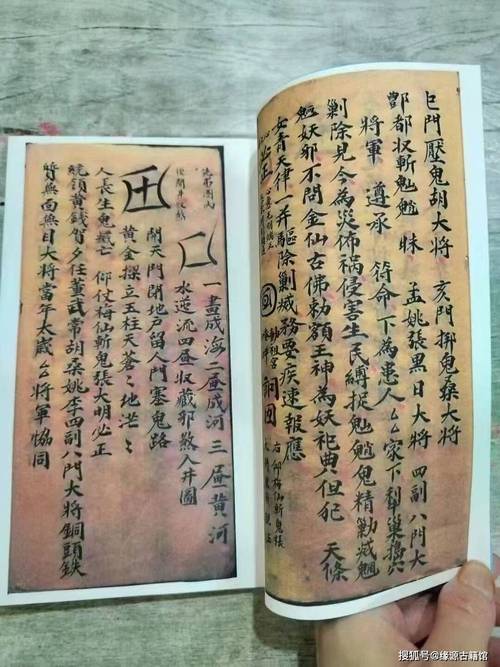 巨門壓鬼胡大將 亥門挪鬼桑大將
酆都收斬魁魈 孟姚張黑日大將 四副八門大
將軍 遵承 符命 下為患人厶厶家下犁巢搗穴
剿除見今為災佈禍侵害生民縛捉魈鬼精勦滅魍
妖邪不問金仙古佛勅額王神為妖祀典但犯 天條
女青天律一并驅除剿滅務要疾速報應
右仰梅仙斬鬼張
一畫成海二畫成河三畫黃河
水逆流四畫收藏邪煞入井圖
後開井收煞
開天門閉地戶留人門塞鬼路
黃金操立玉柱天蒼〻地茫〻
人長生鬼滅亡 仰仗梅仙斬鬼張大明必正
統領黃錢賀夕任董武常胡桑姚李四副八門大將銅頭鉄
質無面無日大將當年太歲厶厶將軍協同
搜狐号@缘源古籍馆